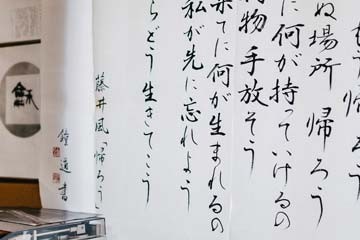 もう帰ろう
ぬ場所 帰ろう
に何が持っていけるの
荷物 手放そう
果てに何が生まれるの
私が先に忘れよう
らどう生きてこう
藤井風「帰ろう」
書